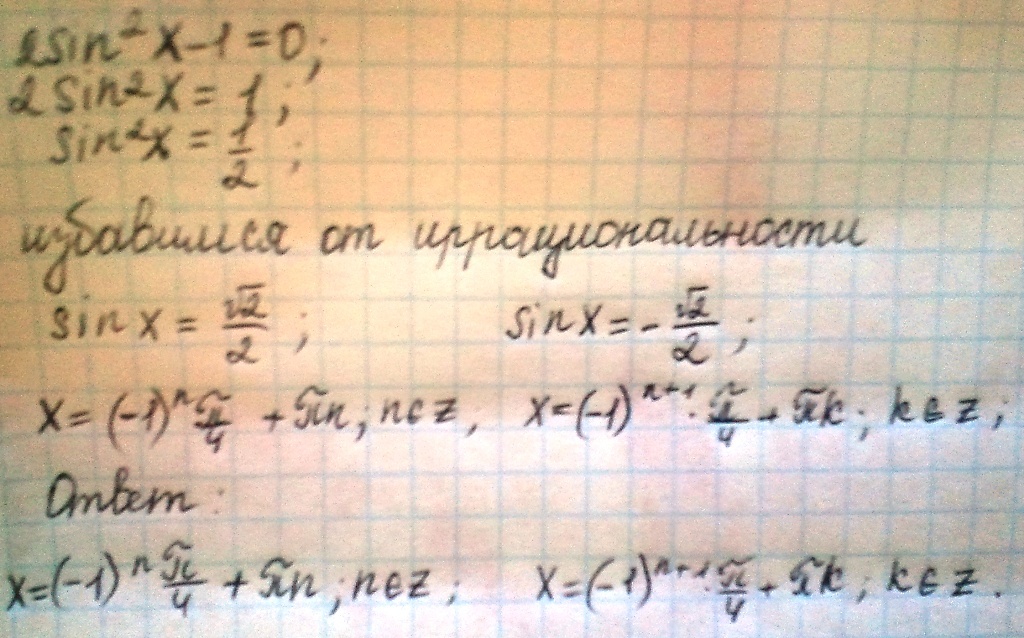 2sin²x-1=0;
2sin²x=1;
sin²x=1/2;
избавимся от иррациональности
sin x = √2/2; sin x = -√2/2;
x=(-1)ⁿ π/4 + πn; n∈z, x=(-1)ⁿ⁺¹·π/4 + πk; k∈z;
Ответ:
x=(-1)ⁿ π/4 + πn; n∈z; x=(-1)ⁿ⁺¹·π/4 + πk; k∈z.